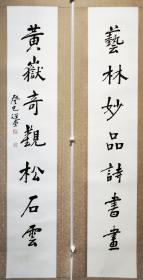 藝林妙品詩書畫
黃嶽奇觀松石雲